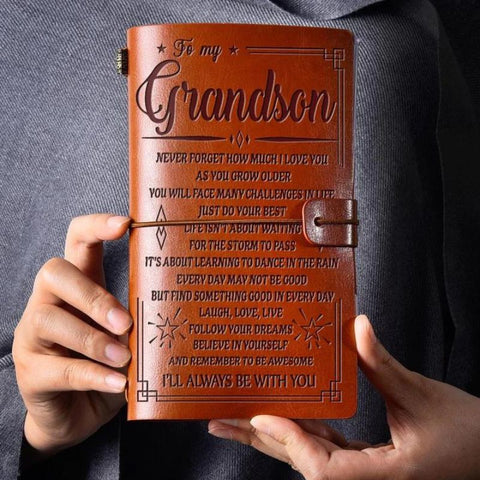 To my
Grandson
NEVER FORGET HOW MUCH I LOVE YOU
AS YOU GROW OLDER
YOU WILL FACE MANY CHALLENGES IN LIFE
JUST DO YOUR BEST
LIFE ISN'T ABOUT WAITING
FOR THE STORM TO PASS
IT'S ABOUT LEARNING TO DANCE IN THE RAIN
EVERY DAY MAY NOT BE GOOD
BUT FIND SOMETHING GOOD IN EVERY DAY
LAUGH, LOVE, LIVE
FOLLOW YOUR DREAMS
BELIEVE IN YOURSELF
AND REMEMBER TO BE AWESOME
I'LL ALWAYS BE WITH YOU